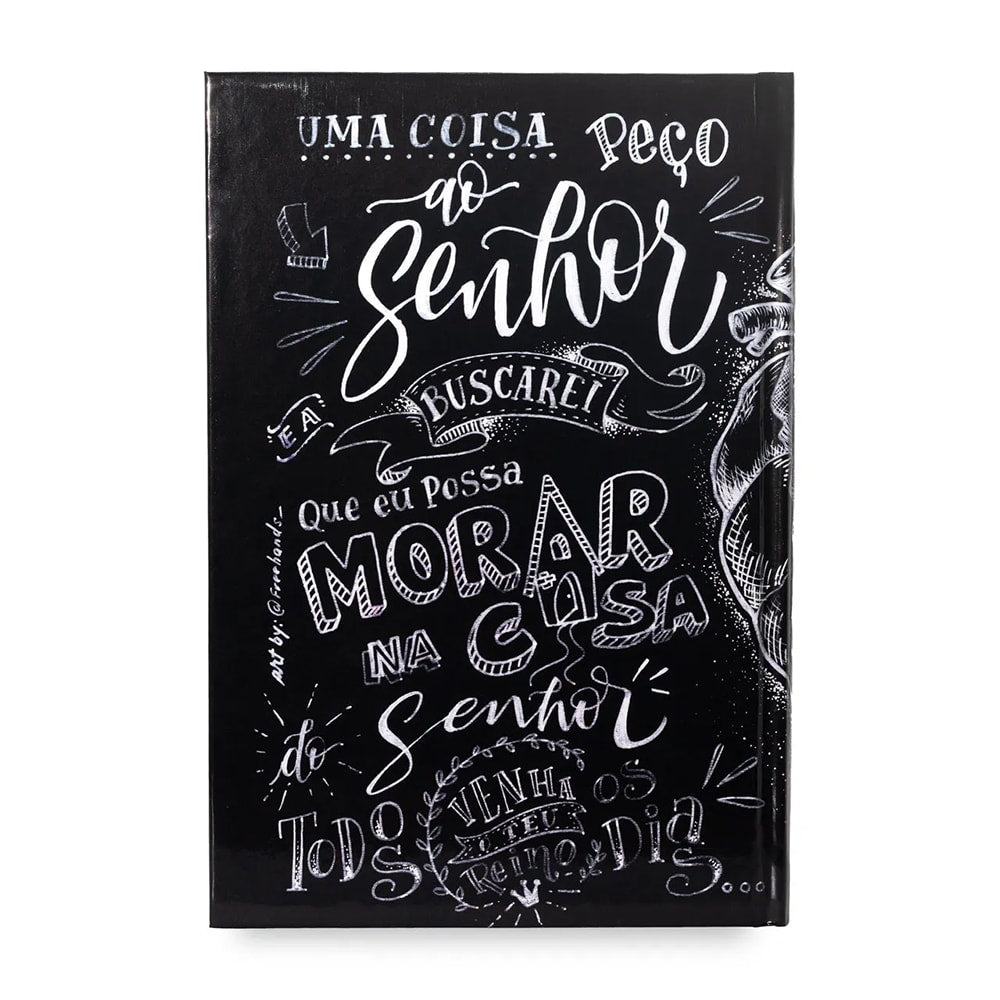 UMA COISA PEÇO
ao
Senhor
E A BUSCAREI
Que eu Possa
MORAR
NA CASA
do Senhor
TODOS OS DIAS...
VENHA
O TEU
Reino
art by: @Freehands_